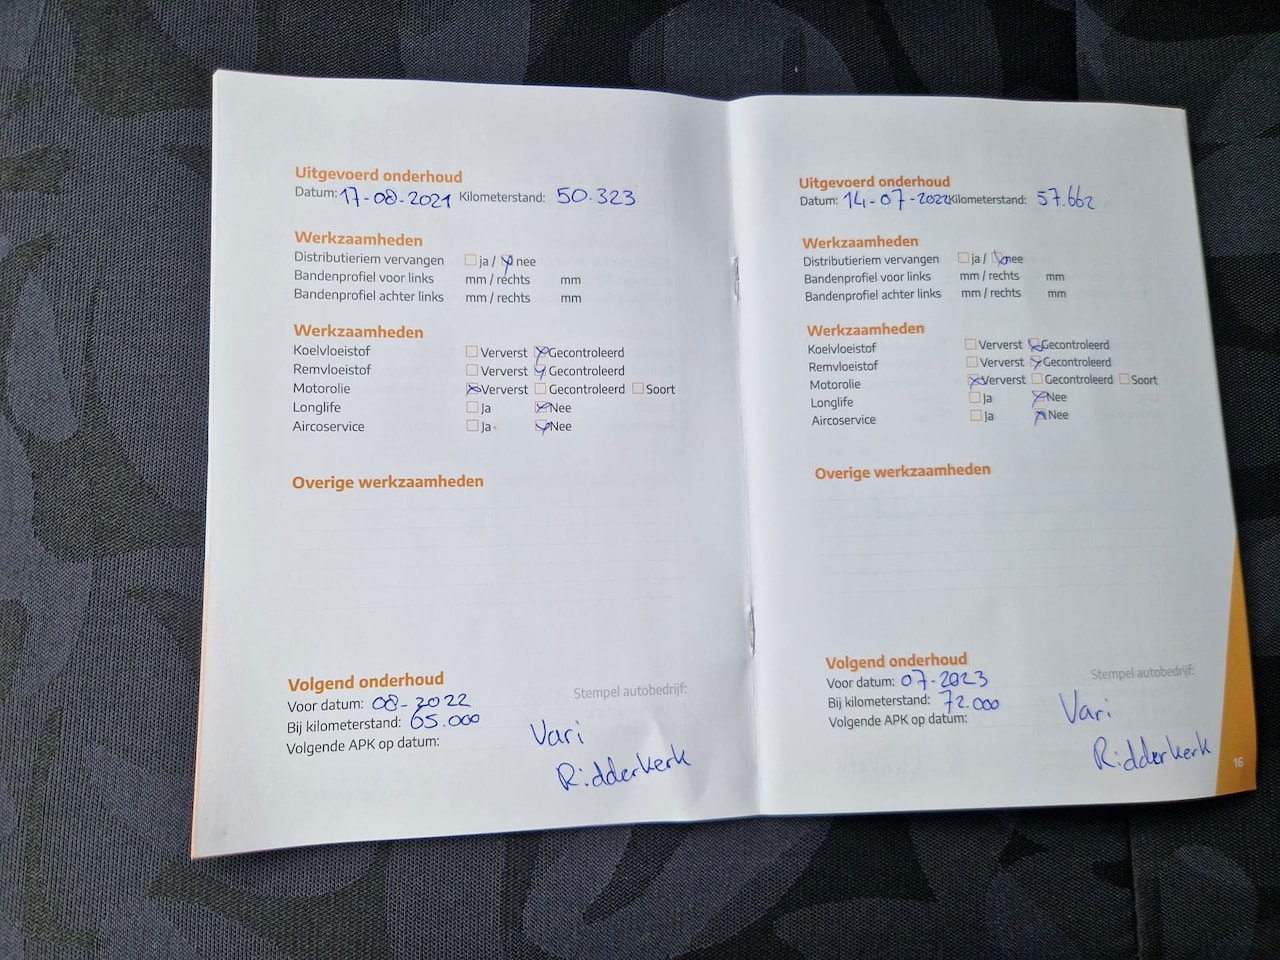 Uitgevoerd onderhoud
Datum: 17-08-2021 Kilometerstand: 50.323
Werkzaamheden
Distributieriem vervangen ja / nee
Bandenprofiel voor links mm / rechts mm
Bandenprofiel achter links mm / rechts mm
Werkzaamheden
Koelvloeistof Ververst Gecontroleerd
Remvloeistof Ververst Gecontroleerd
Motorolie Ververst Gecontroleerd Soort
Longlife Ja Nee
Aircoservice Ja Nee
Overige werkzaamheden
Volgend onderhoud
Voor datum: 08-2022
Bij kilometerstand: 65.000
Volgende APK op datum:
Stempel autobedrijf:
Vari
Ridderkerk
Uitgevoerd onderhoud
Datum: 14-07-2022 Kilometerstand: 57.662
Werkzaamheden
Distributieriem vervangen ja / nee
Bandenprofiel voor links mm / rechts mm
Bandenprofiel achter links mm / rechts mm
Werkzaamheden
Koelvloeistof Ververst Gecontroleerd
Remvloeistof Ververst Gecontroleerd
Motorolie Ververst Gecontroleerd Soort
Longlife Ja Nee
Aircoservice Ja Nee
Overige werkzaamheden
Volgend onderhoud
Voor datum: 07-2023
Bij kilometerstand: 72.000
Volgende APK op datum:
Stempel autobedrijf:
Vari
Ridderkerk
16